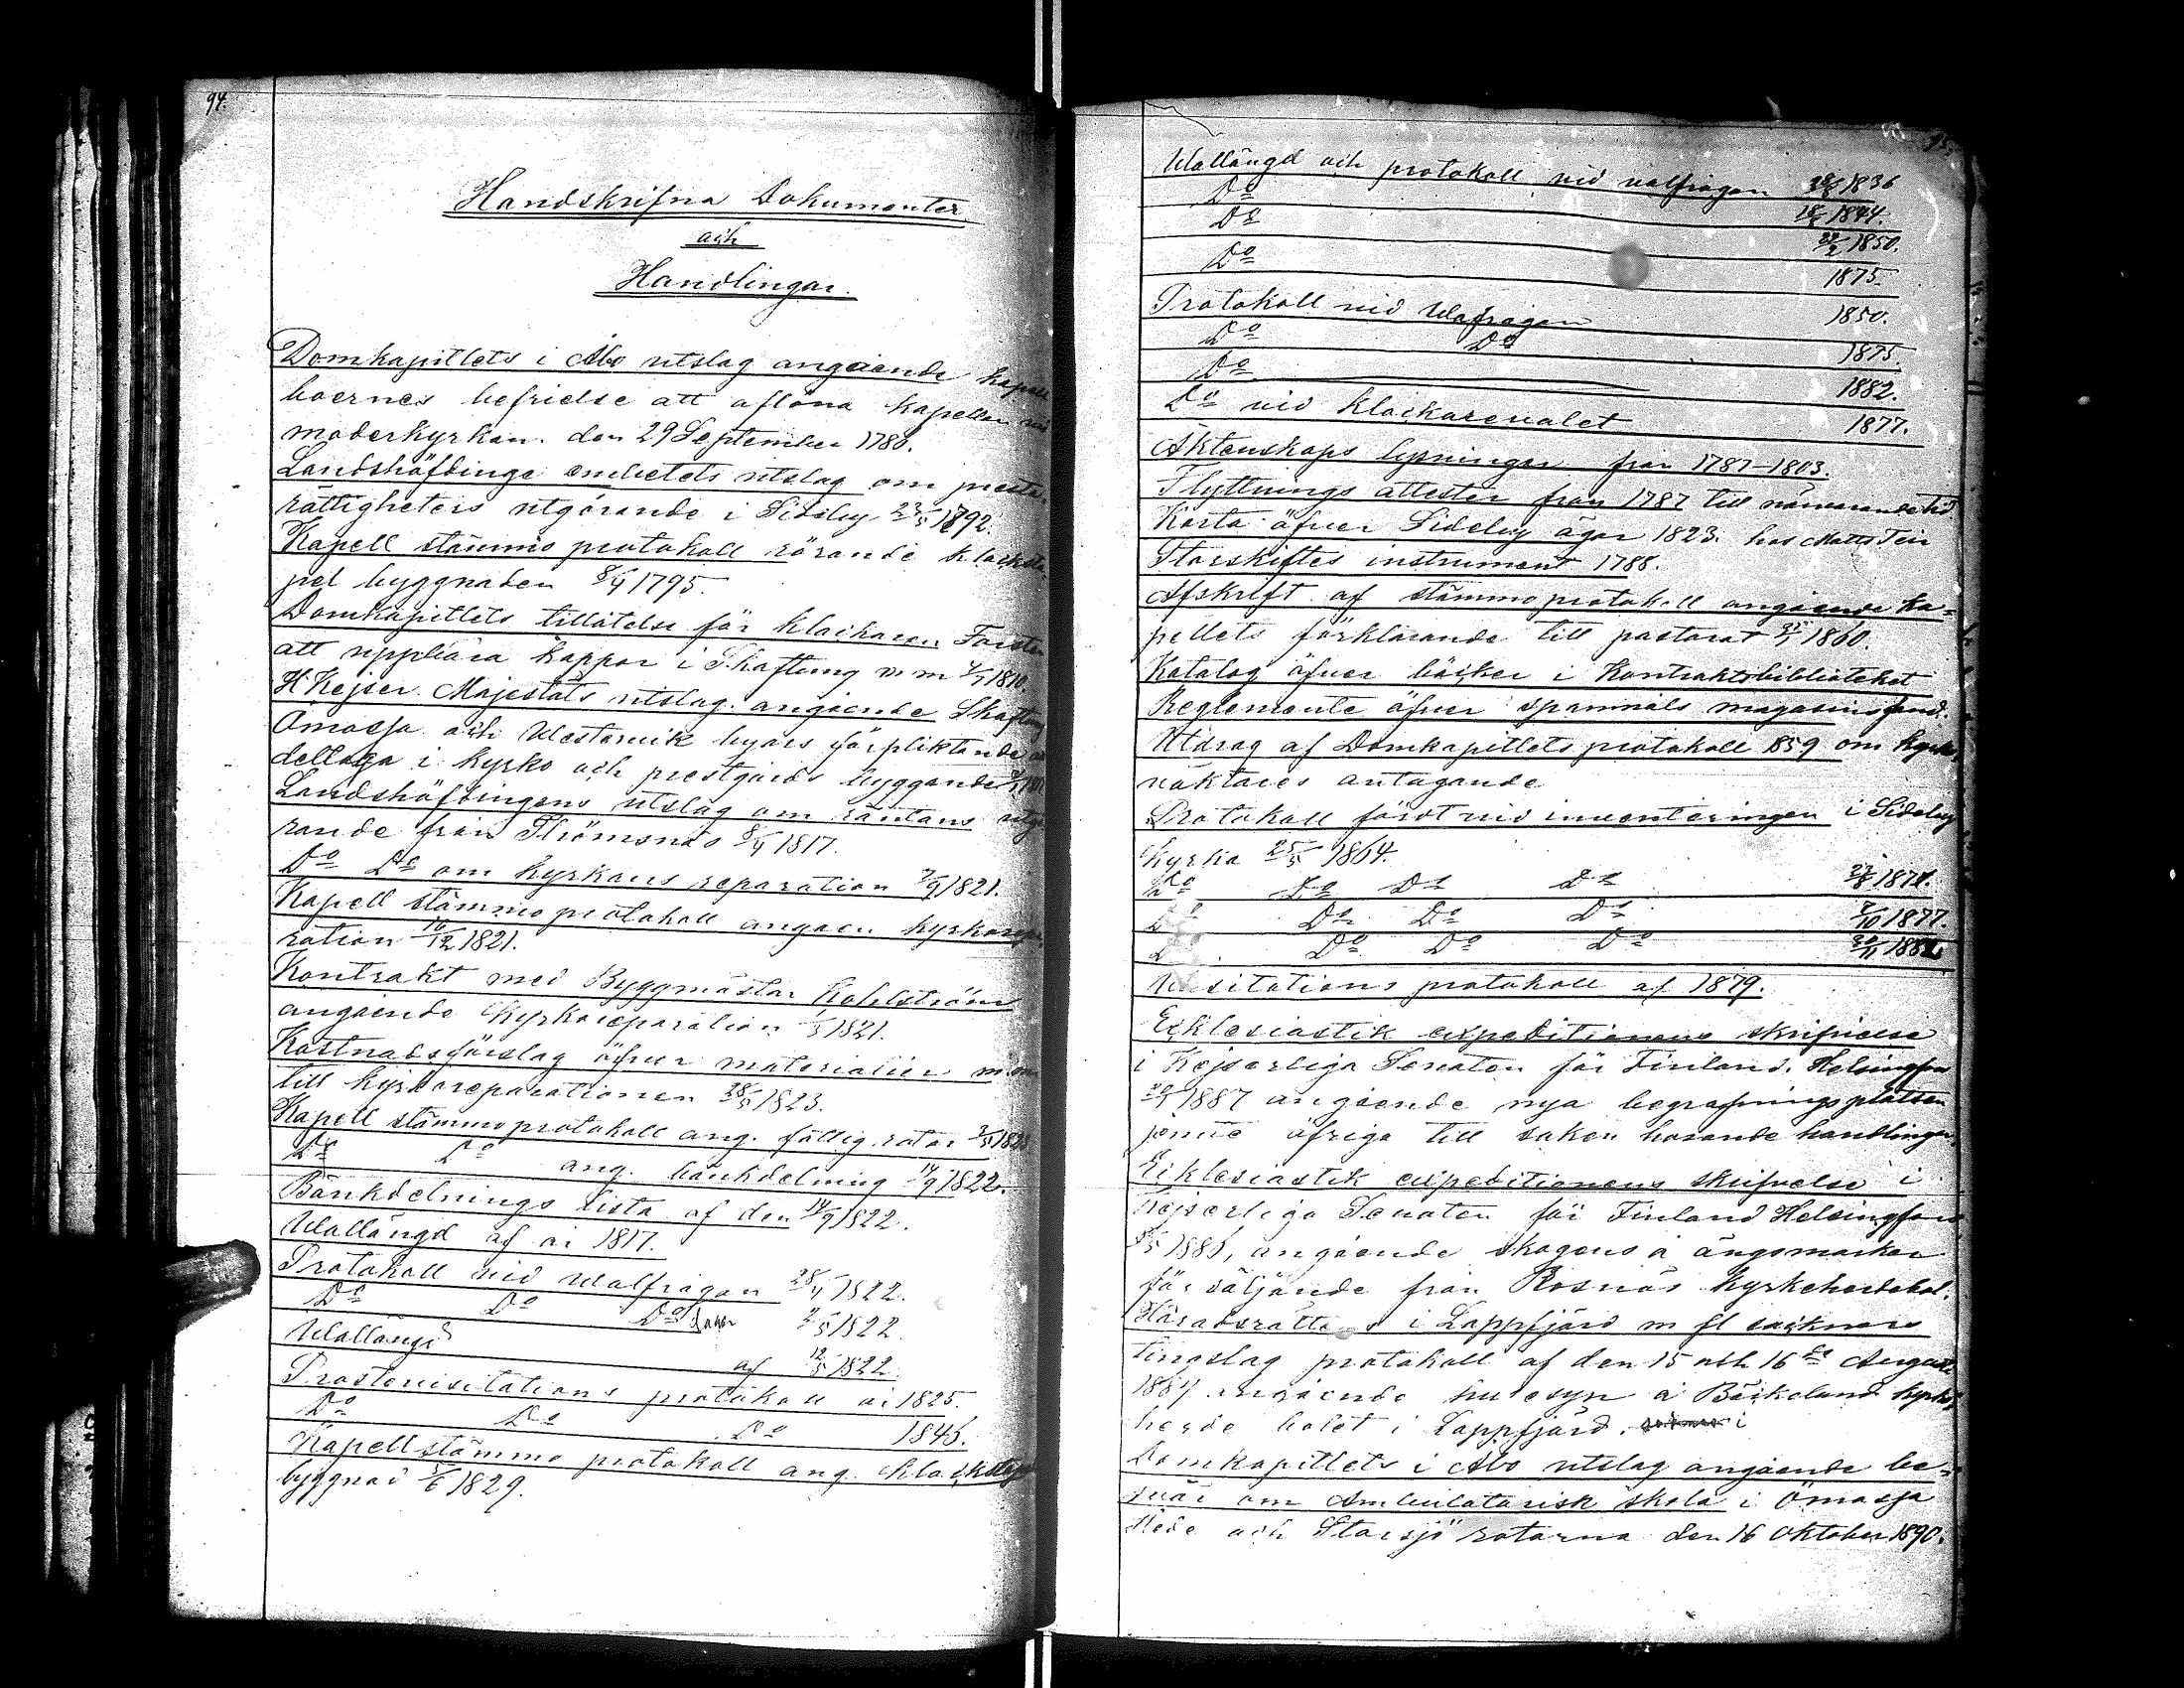 94.
Handskrifna Dokumenter
och
Handlingar.
Domkapitlets i Åbo utslag angående kapell
boernes befrielse att aflöna kapellan vid
moderkyrkan. den 29 September 1780.
Landshöfdinge embetets utslag om preste
rättigheters utgörande i Sideby 1792.
Kapell stämmo protokoll rörande klocksta-
pel byggnaden 8/4 1795.
Domkapitlets tillåtelse för klockaren Forsten
att uppbära kappor i Skaftung m m 1810.
H Kejser. Majestäts utslag. angående Skaftung
Ömossa och Westervik byars förpliktande att
deltaga i kyrko och prestgårds byggande
Landshöfdingens utslag om räntans utgö
rande från Strömsnäs 8/4 1817.
Do Do om kyrkans reparation 7/9 1821.
Kapell stämmo protokoll angåen. kyrkorepa
ration 16/12 1821.
Kontrakt med Byggmästar Kahlström
angående kyrkoreparation 1821.
Kostnadsförslag öfver materialier m m
till kyrkoreparationen 28/5 1823.
Kapell stämmo protokoll ang. fattig rotar
Do Do ang. bänkdelning 14/9 1822.
Bänkdelnings lista af den 14/9 1822.
Wallängd af år 1817.
Protokoll vid walfrågan 28/4 1822.
Do Do Do 2/5 1822.
Wallängd af 12/5 1822.
Prostevisitations protokoll år 1825.
Do Do Do 1845.
Kapellstämmo protokoll ang. klockstapel
byggnad 5/6 1829.
95.
Wallängd och protokoll vid valfrågan 1836
Do 1844.
Do 1850.
Do 1875.
Protokoll vid Walfrågan 1850.
Do Do 1875.
Do 1882.
Do vid klockarevalet 1877.
Äktenskaps lysningar från 1787-1803.
Flyttnings attester från 1787 till närvarande tid
Karta öfver Sideby ägor 1823. hos Matts Teir
Storskiftes instrument 1788.
Afskrift af stämmo protokoll angående ka-
pellets förklarande till pastorat 1860.
Katalog öfver böcker i Kontraktsbiblioteket
Reglemente öfver spannmåls magasins fond.
Utdrag af Domkapitlets protokoll 1859 om kyrko
väktares antagande
Protokoll fördt vid inventeringen i Sideby
kyrka 25/5 1864.
Do Do Do Do 1871.
Do Do Do Do 7/10 1877.
Do Do Do Do 1882.
Visitations protokoll af 1879.
Ecklesiastik expeditionens skrifvelse
i Kejserliga Senaten för Finland. Helsingfors
1887 angående nya begrafningsplatsen
jemte öfriga till saken hörande handlingar.
Ecklesiastik expeditionens skrifvelse i
Kejserliga Senaten för Finland Helsingfors
angående skogens å ängsmarken
försäljande från Rosnäs kyrkoherdebol.
Häradsrättens i Lappfjärd m fl socknars
tingslag protokoll af den 15 och 16de Augusti
angående husesyn å Bäckelund kyrko
herde bolet i Lappfjärd. i
Domkapitlets i Åbo utslag angående be-
svär om Ambulatorisk skola i Ömossa
Hede och Storsjö rotarna den 16 Oktober 1890.